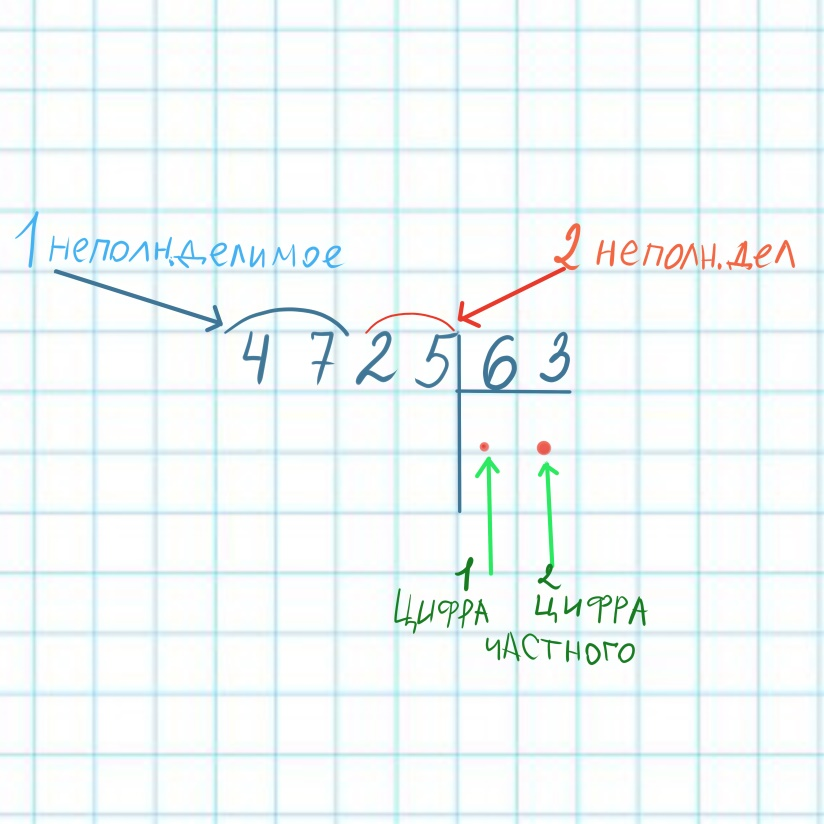 1 неполн.делимое
2 неполн.дел
4 7 2 5 6 3
1 2
ЦИФРА ЦИФРА
ЧАСТНОГО